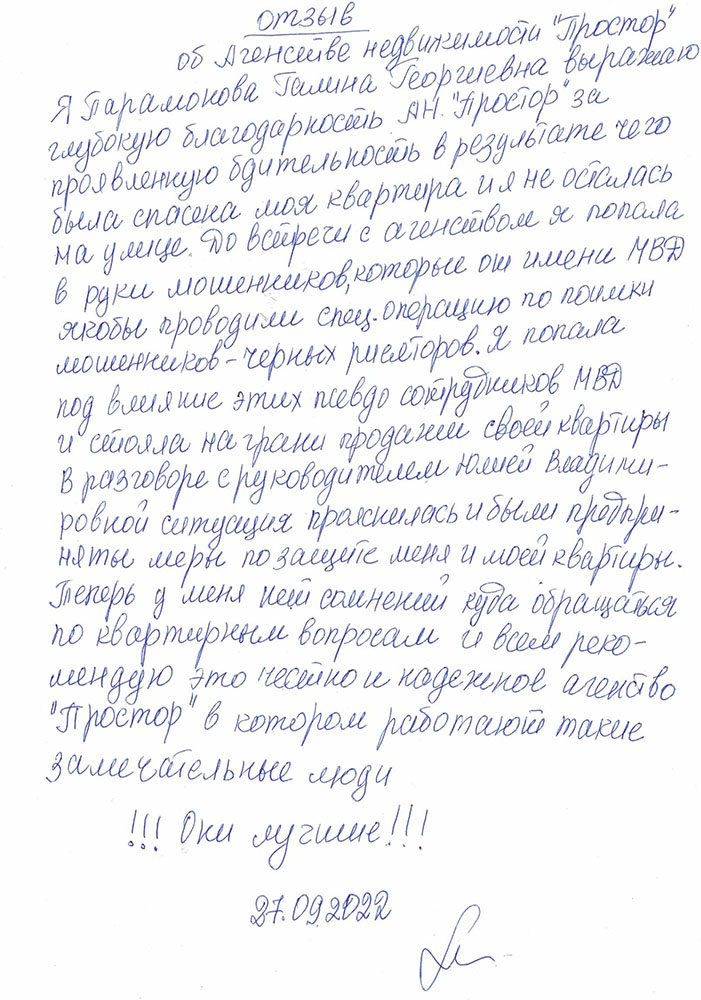 отзыв
об Агенстве недвижимости "Простор"
Я Парамонова Галина Георгиевна выражаю
глубокую благодарность АН. "Простор" за
проявленную бдительность в результате чего
была спасена моя квартира и я не осталась
на улице. До встречи с агенством я попала
в руки мошенников, которые от имени МВД
якобы проводили спец. операцию по поимки
мошенников - черных риелторов. Я попала
под влияние этих псевдо сотрудников МВД
и стояла на грани продажи своей квартиры
В разговоре с руководителем Юлией Владими-
ровной ситуация прояснилась и были предпри-
няты меры по защите меня и моей квартиры.
Теперь у меня нет сомнений куда обращаться
по квартирным вопросам и всем реко-
мендую это честно и надежное агенство
"Простор" в котором работают такие
замечательные люди
!!! Они лучшие!!!
27.09.2022